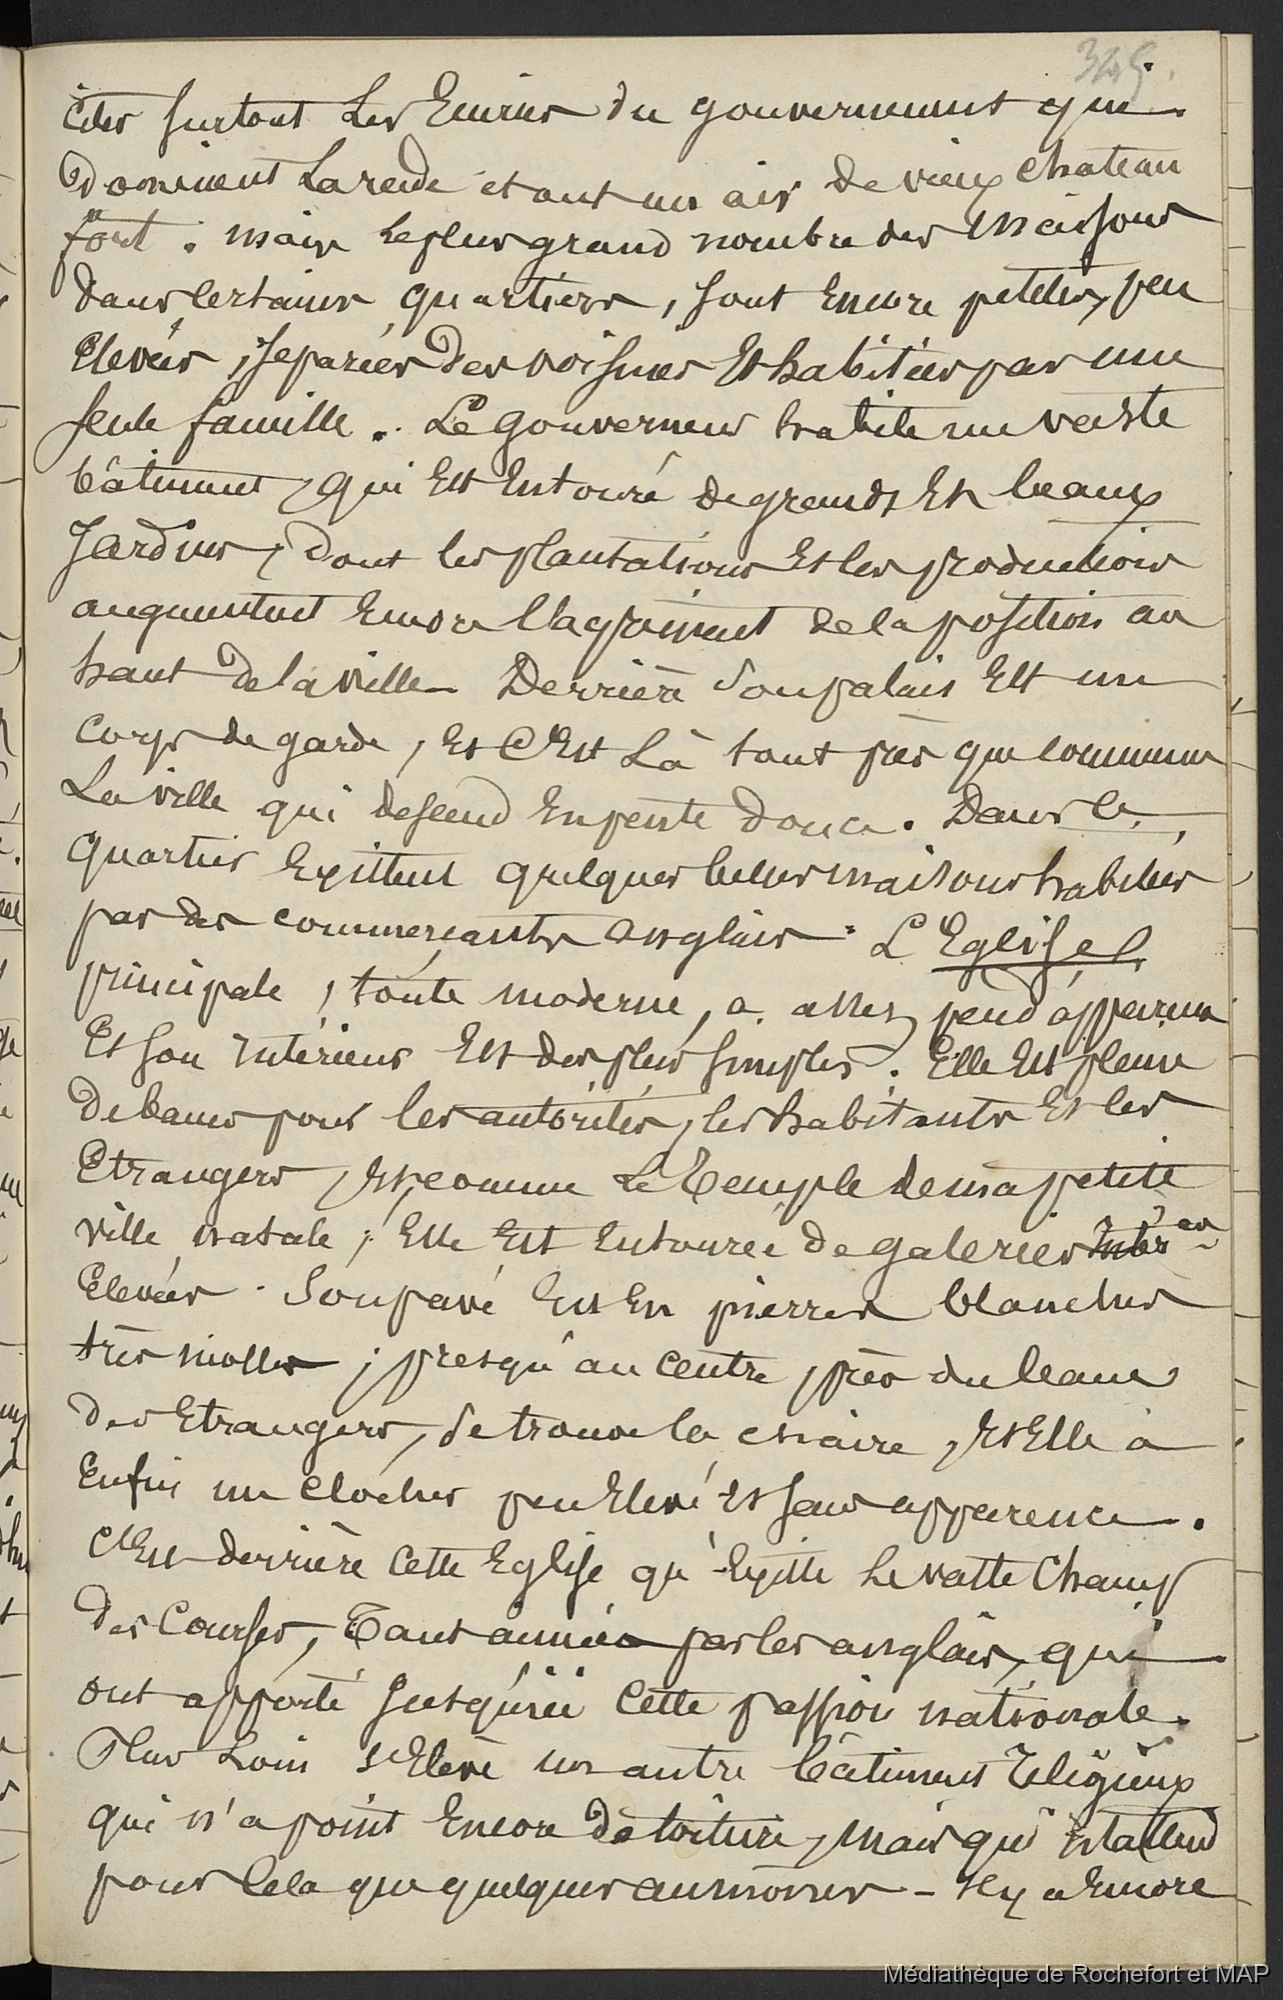 349.
citer surtout les Ecuries du gouvernement qui
dominent la rade et ont un air de vieux chateau
fort. mais le plus grand nombre des maisons
dans certains quartiers, sont encore petites, peu
Elevées, separées des voisines Et habitées par une
seule famille. Le gouverneur habite un vaste
bâtiment, qui Est Entouré de grands Et beaux
Jardins, dont les plantations Et les productions
augmentent Encore l'agrément de la position au
haut de la ville. Derrière son palais Est un
Corps de garde, Et C'Est là tout près que commence
La ville qui descend En pente douce. Dans ce
quartier Existent quelques belles maisons habitées
par des commerçants anglais. L'Eglise
principale, toute moderne, a assez peu d'apparence
Et son intérieur Est des plus simples. Elle Est pleine
de bancs pour les autorités, les habitants Et les
Etrangers, Et comme Le Temple de ma petite
ville natale, Elle Est Entourée de galeries
Elevées. Son pavé Est En pierres blanches
très molles; presqu'au centre, près du banc
des Etrangers, se trouve la chaire, Et Elle a
Enfin un clocher peu Elevé Et sans apparence.
C'Est derrière cette Eglise qu'Existe Le vaste Champ
des Courses, Tant aimées par les anglais, qui
ont apporté Jusqu'ici cette passion nationale.
Plus Loin s'Elève un autre bâtiment religieux
qui n'a point Encore de toiture, mais qui n'attend
pour cela que quelques aumônes – Il y a Encore
Médiathèque de Rochefort et MAP